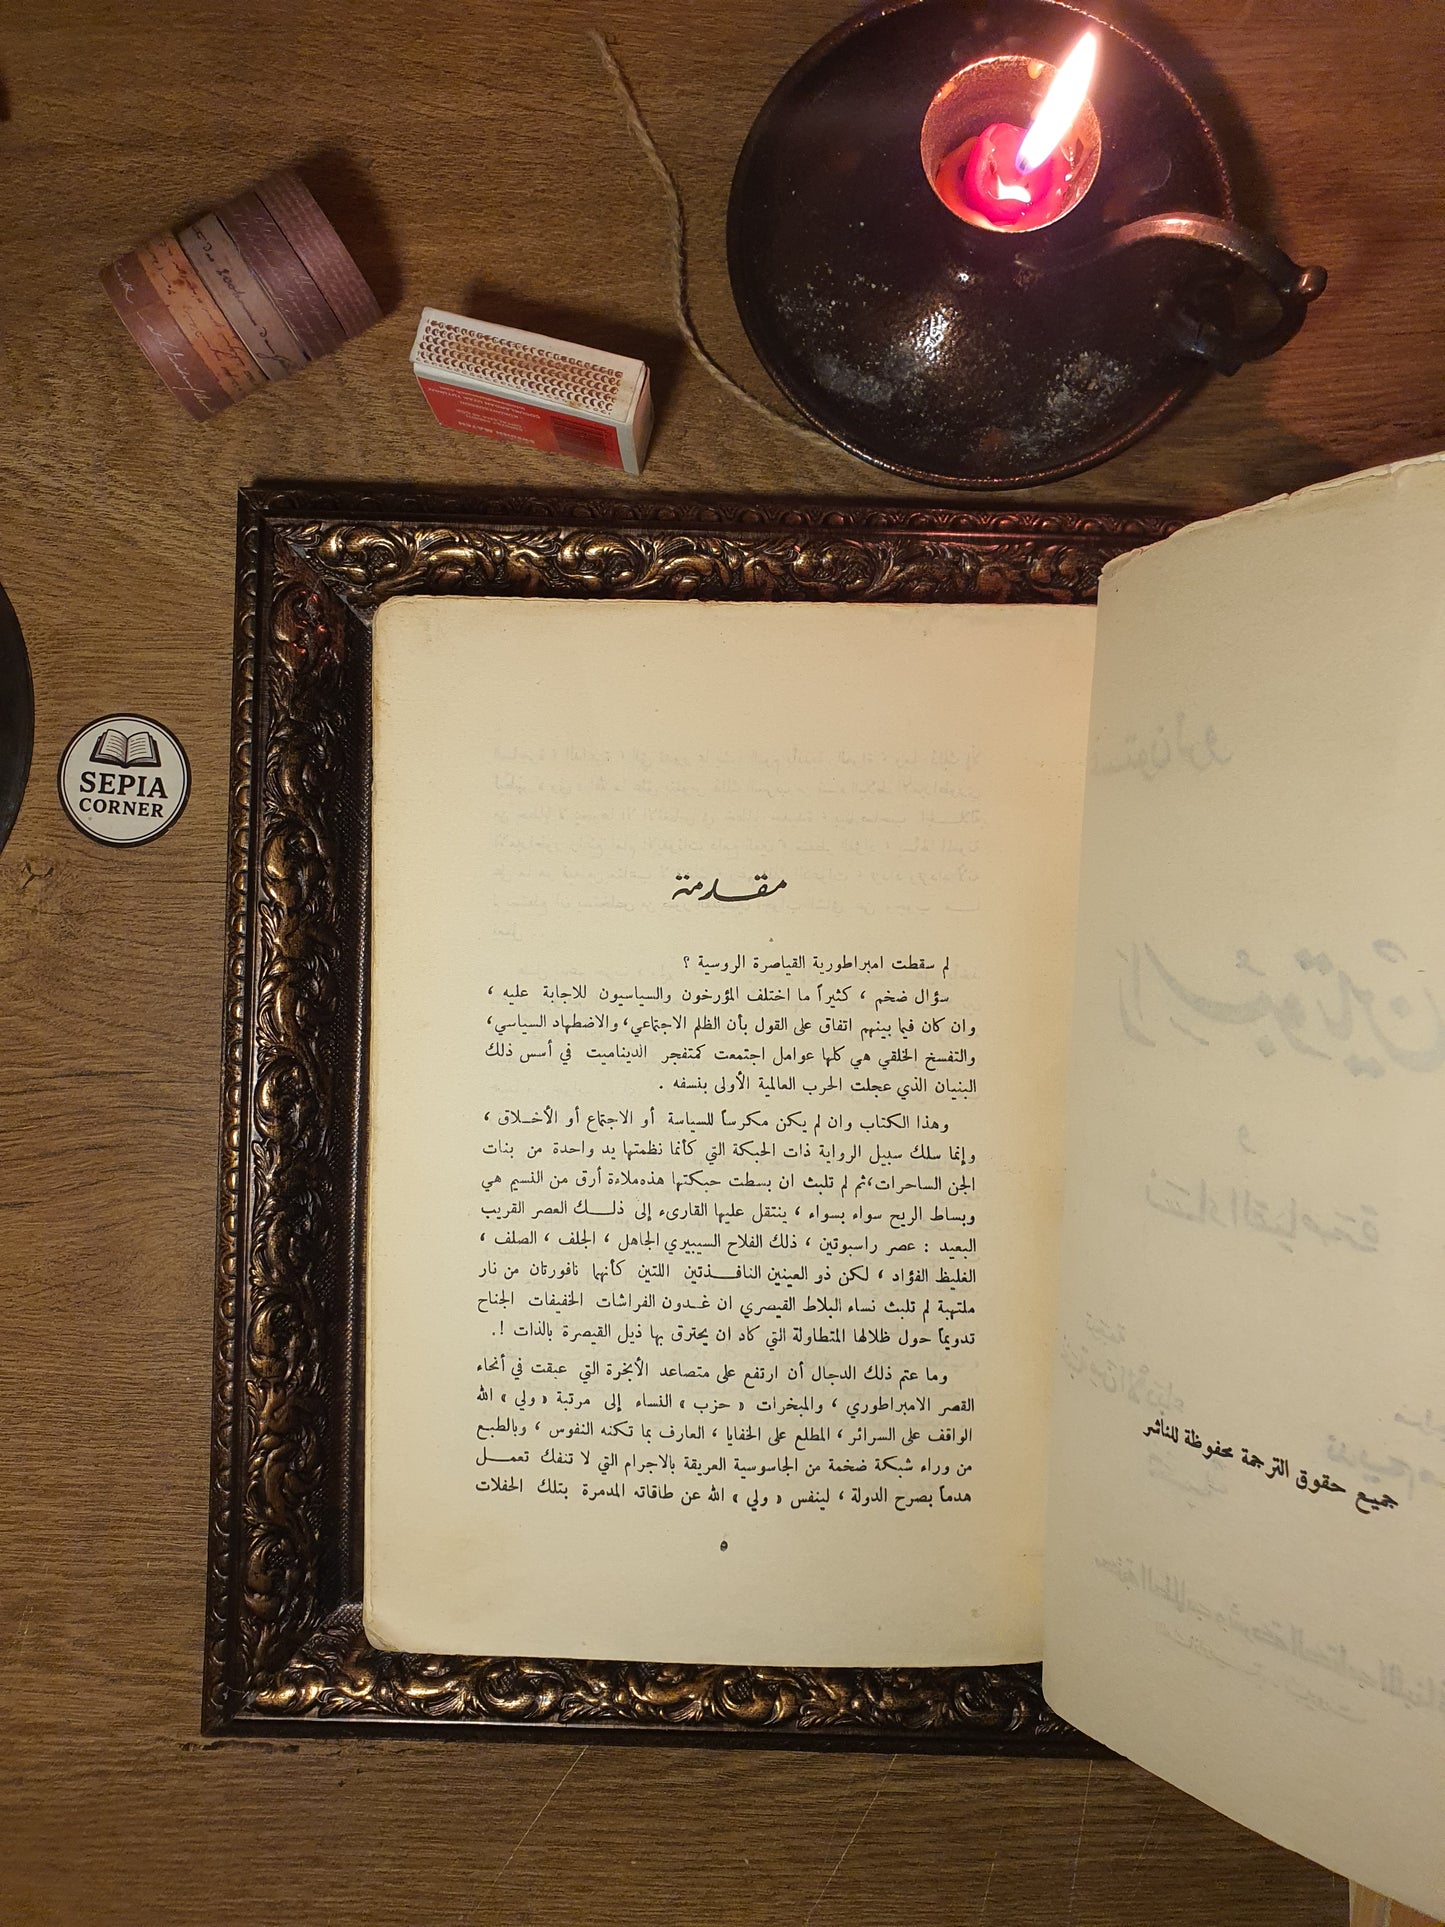 SEPIA
CORNER
مقدمة
لم سقطت امبراطورية القياصرة الروسية ؟
سؤال ضخم ، كثيراً ما اختلف المؤرخون والسياسيون للاجابة عليه ،
وان كان فيما بينهم اتفاق على القول بأن الظلم الاجتماعي، والاضطهاد السياسي،
والتفسخ الخلقي هي كلها عوامل اجتمعت كمتفجر الديناميت في أسس ذلك
البنيان الذي عجلت الحرب العالمية الأولى بنسفه .
وهذا الكتاب وان لم يكن مكرساً للسياسة أو الاجتماع أو الأخـلاق ،
وإنما سلك سبيل الرواية ذات الحبكة التي كأنما نظمتها يد واحدة من بنات
الجن الساحرات،ثم لم تلبث ان بسطت حبكتها هذه‌ملاءة أرق من النسيم هي
وبساط الريح سواء بسواء ، ينتقل عليها القارىء إلى ذلـــك العصر القريب
البعيد : عصر راسبوتين ، ذلك الفلاح السيبيري الجاهل ، الجلف ، الصلف ،
الغليظ الفؤاد ، لكن ذو العينين النافـــذتين اللتين كأنهما نافورتان من نار
ملتهبة لم تلبث نساء البلاط القيصري ان غـدون الفراشات الخفيفات الجناح
تدويماً حول ظلالها المتطاولة التي كاد ان يحترق بها ذيل القيصرة بالذات !.
وما عتم ذلك الدجال أن ارتفع على متصاعد الأبخرة التي عبقت في أنحاء
القصر الامبراطوري ، والمبخرات « حزب » النساء إلى مرتبة « ولي » الله
الواقف على السرائر ، المطلع على الخفايا ، العارف بما تكنه النفوس ، وبالطبـع
من وراء شبكة ضخمة من الجاسوسية العريقة بالاجرام التي لا تنفك تعمـــل
هدماً بصرح الدولة ، لينفس « ولي » الله عن طاقاته المدمرة بتلك الحفلات
٥
جميع حقوق الترجمة محفوظة للناشر